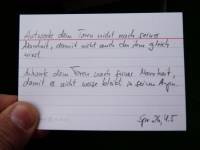 Antworte dem Toren nicht nach seiner
Narrheit, damit nicht auch du ihm gleich
wirst.
Antworte dem Toren nach seiner Narrheit,
damit er nicht weise bleibt in seinen Augen.
Spr 26, 4.5